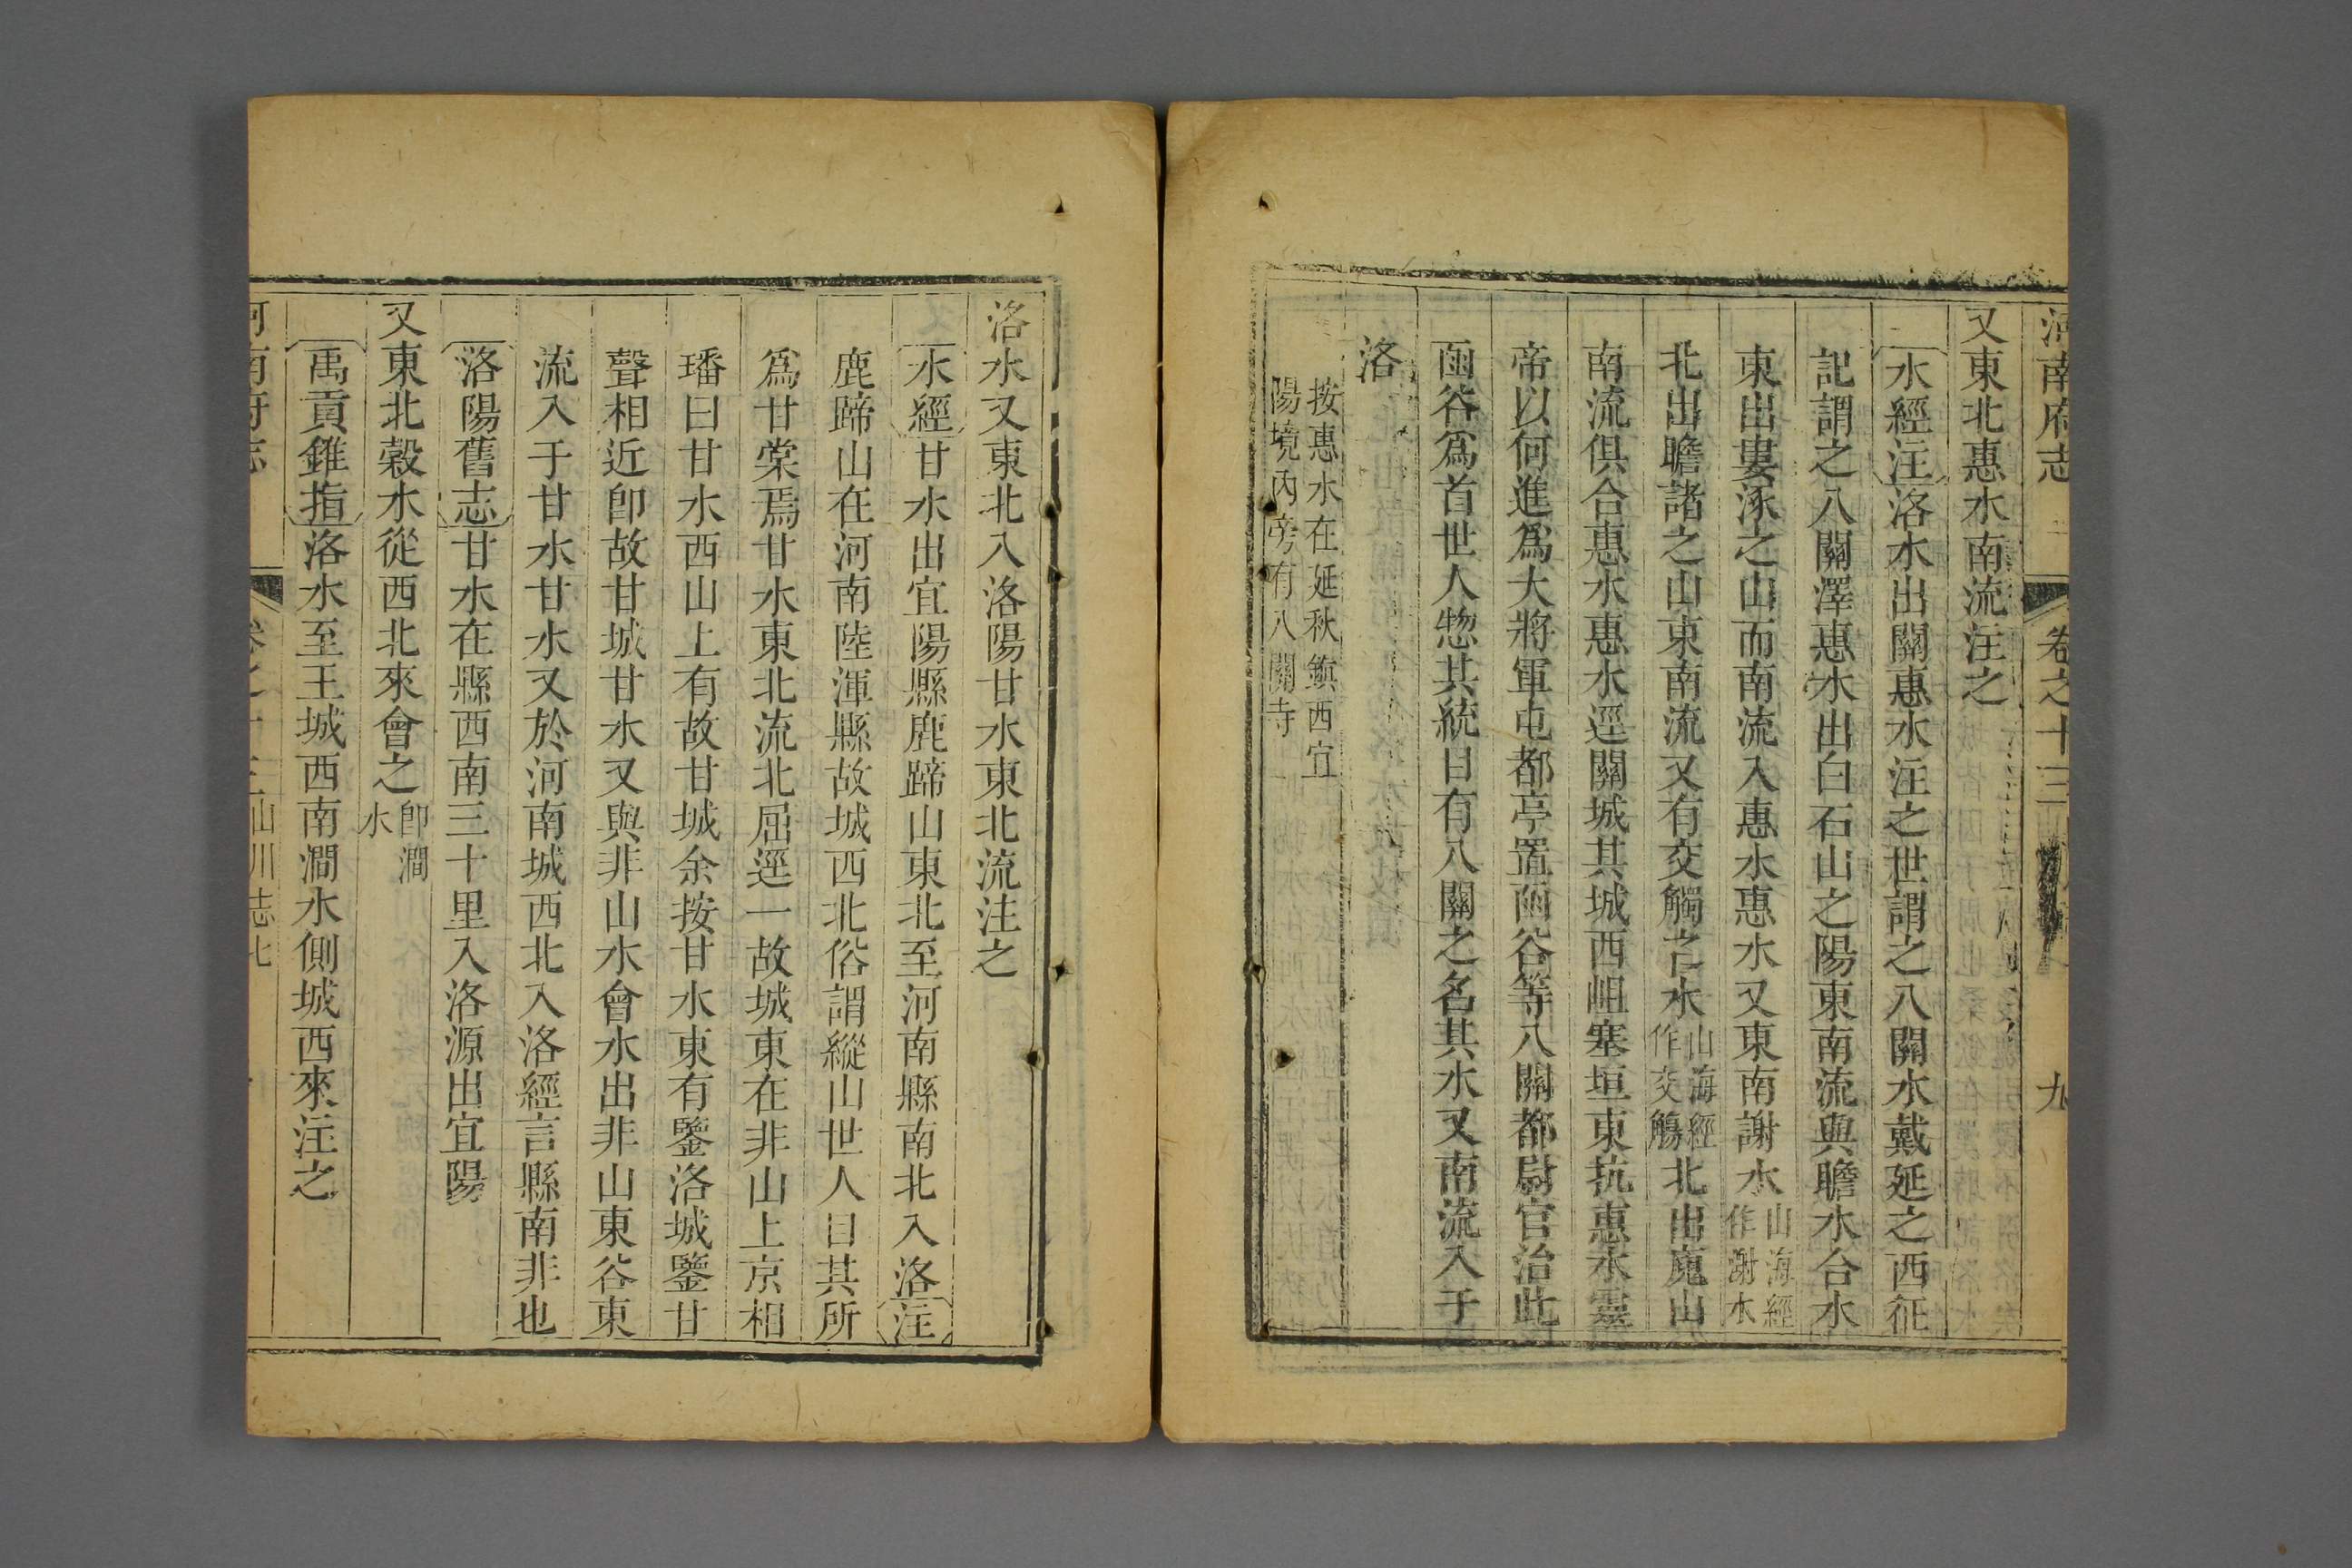 河南府志 卷之十三 九
又東北惠水南流注之
水經注洛水出關惠水注之世謂之八關水戴延之西征
記謂之八關澤惠水出白石山之陽東南流與瞻水合水
東出婁涿之山而南流入惠水惠水又東南謝水山海經作謝水
北出瞻諸之山東南流又有交觸之水山海經作交觴北出廆山
南流俱合惠水惠水逕關城其城西岨塞垣東抗惠水靈
帝以何進爲大將軍屯都亭置函谷等八關都尉官治此
函谷爲首世人惣其統目有八關之名其水又南流入于
洛
按惠水在延秋鎮西宜
陽境內旁有八關寺
洛水又東北入洛陽甘水東北流注之
水經甘水出宜陽縣鹿蹄山東北至河南縣南北入洛注
鹿蹄山在河南陸渾縣故城西北俗謂縱山世人目其所
爲甘棠焉甘水東北流北屈逕一故城東在非山上京相
璠曰甘水西山上有故甘城余按甘水東有鑒洛城鑒甘
聲相近卽故甘城甘水又與非山水會水出非山東谷東
流入于甘水甘水又於河南城西北入洛經言縣南非也
洛陽舊志甘水在縣西南三十里入洛源出宜陽
又東北穀水從西北來會之卽澗水
禹貢錐指洛水至王城西南澗水側城西來注之
河南府志 卷之十三 山川志 北